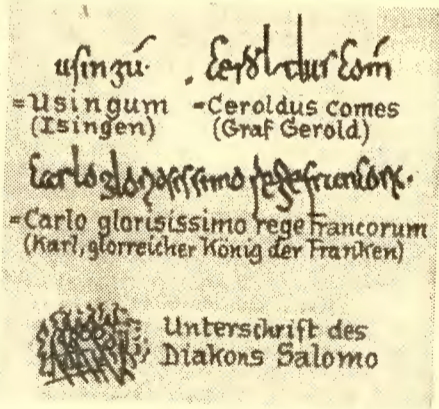 usingū· Ceroldus Com̄
=Usingum =Ceroldus comes
(Isingen) (Graf Gerold)
Carlo gloriosissimo rege
=Carlo glorisissimo rege Francorum
(Karl, glorreicher König der Franken)
Unterschrift des
Diakons Salomo